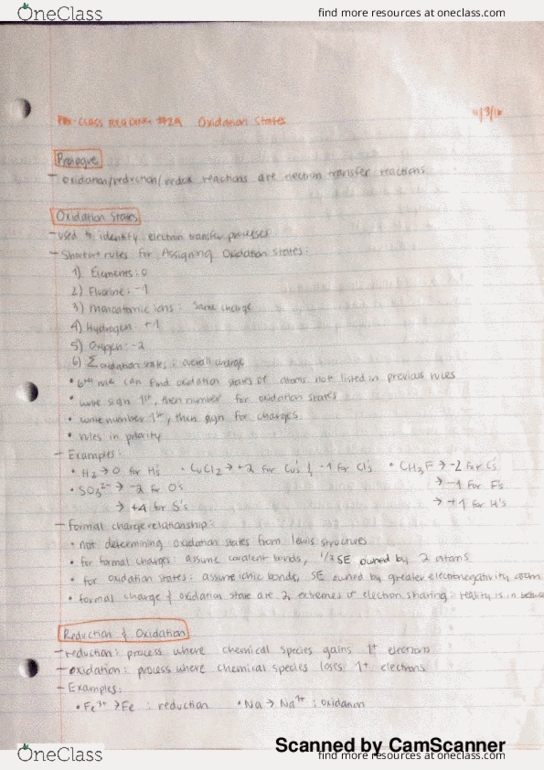 OneClass find more resources at oneclass.com
PRE-CLASS READING #2A Oxidation States 11/3/18
Prologue
- oxidation/reduction/redox reactions are electron transfer reactions
Oxidation States
- used to identify electron transfer processes
- Shortcut rules for Assigning Oxidation States:
1) Elements: 0
2) Fluorine: -1
3) Monoatomic ions: same charge
4) Hydrogen: +1
5) Oxygen: -2
6) Σ oxidation states = overall charge
• 6th rule can find oxidation states of atoms not listed in previous rules
• write sign 1st, then number for oxidation states
• write number 1st, then sign for charges
• rules in priority
- Examples:
• H2 → 0 for H's • CuCl2 → +2 for Cu's & -1 for Cl's • CH3F → -2 for C's
• SO3 2- → -2 for O's → -1 for F's
→ +4 for S's → +1 for H's
- Formal charge relationship:
• not determining oxidation states from lewis structures
• for formal charges: assume covalent bonds, 1/2 SE owned by 2 atoms
• for oxidation states: assume ionic bonds, SE owned by greater electronegativity atom
• formal charge & oxidation state are 2 extremes of electron sharing: reality is in
Reduction & Oxidation
- reduction: process where chemical species gains 1+ electrons
- oxidation: process where chemical species loses 1+ electrons
- Examples:
• Fe3+ → Fe : reduction • Na → Na1+ : oxidation
Scanned by CamScanner
OneClass find more resources at oneclass.com